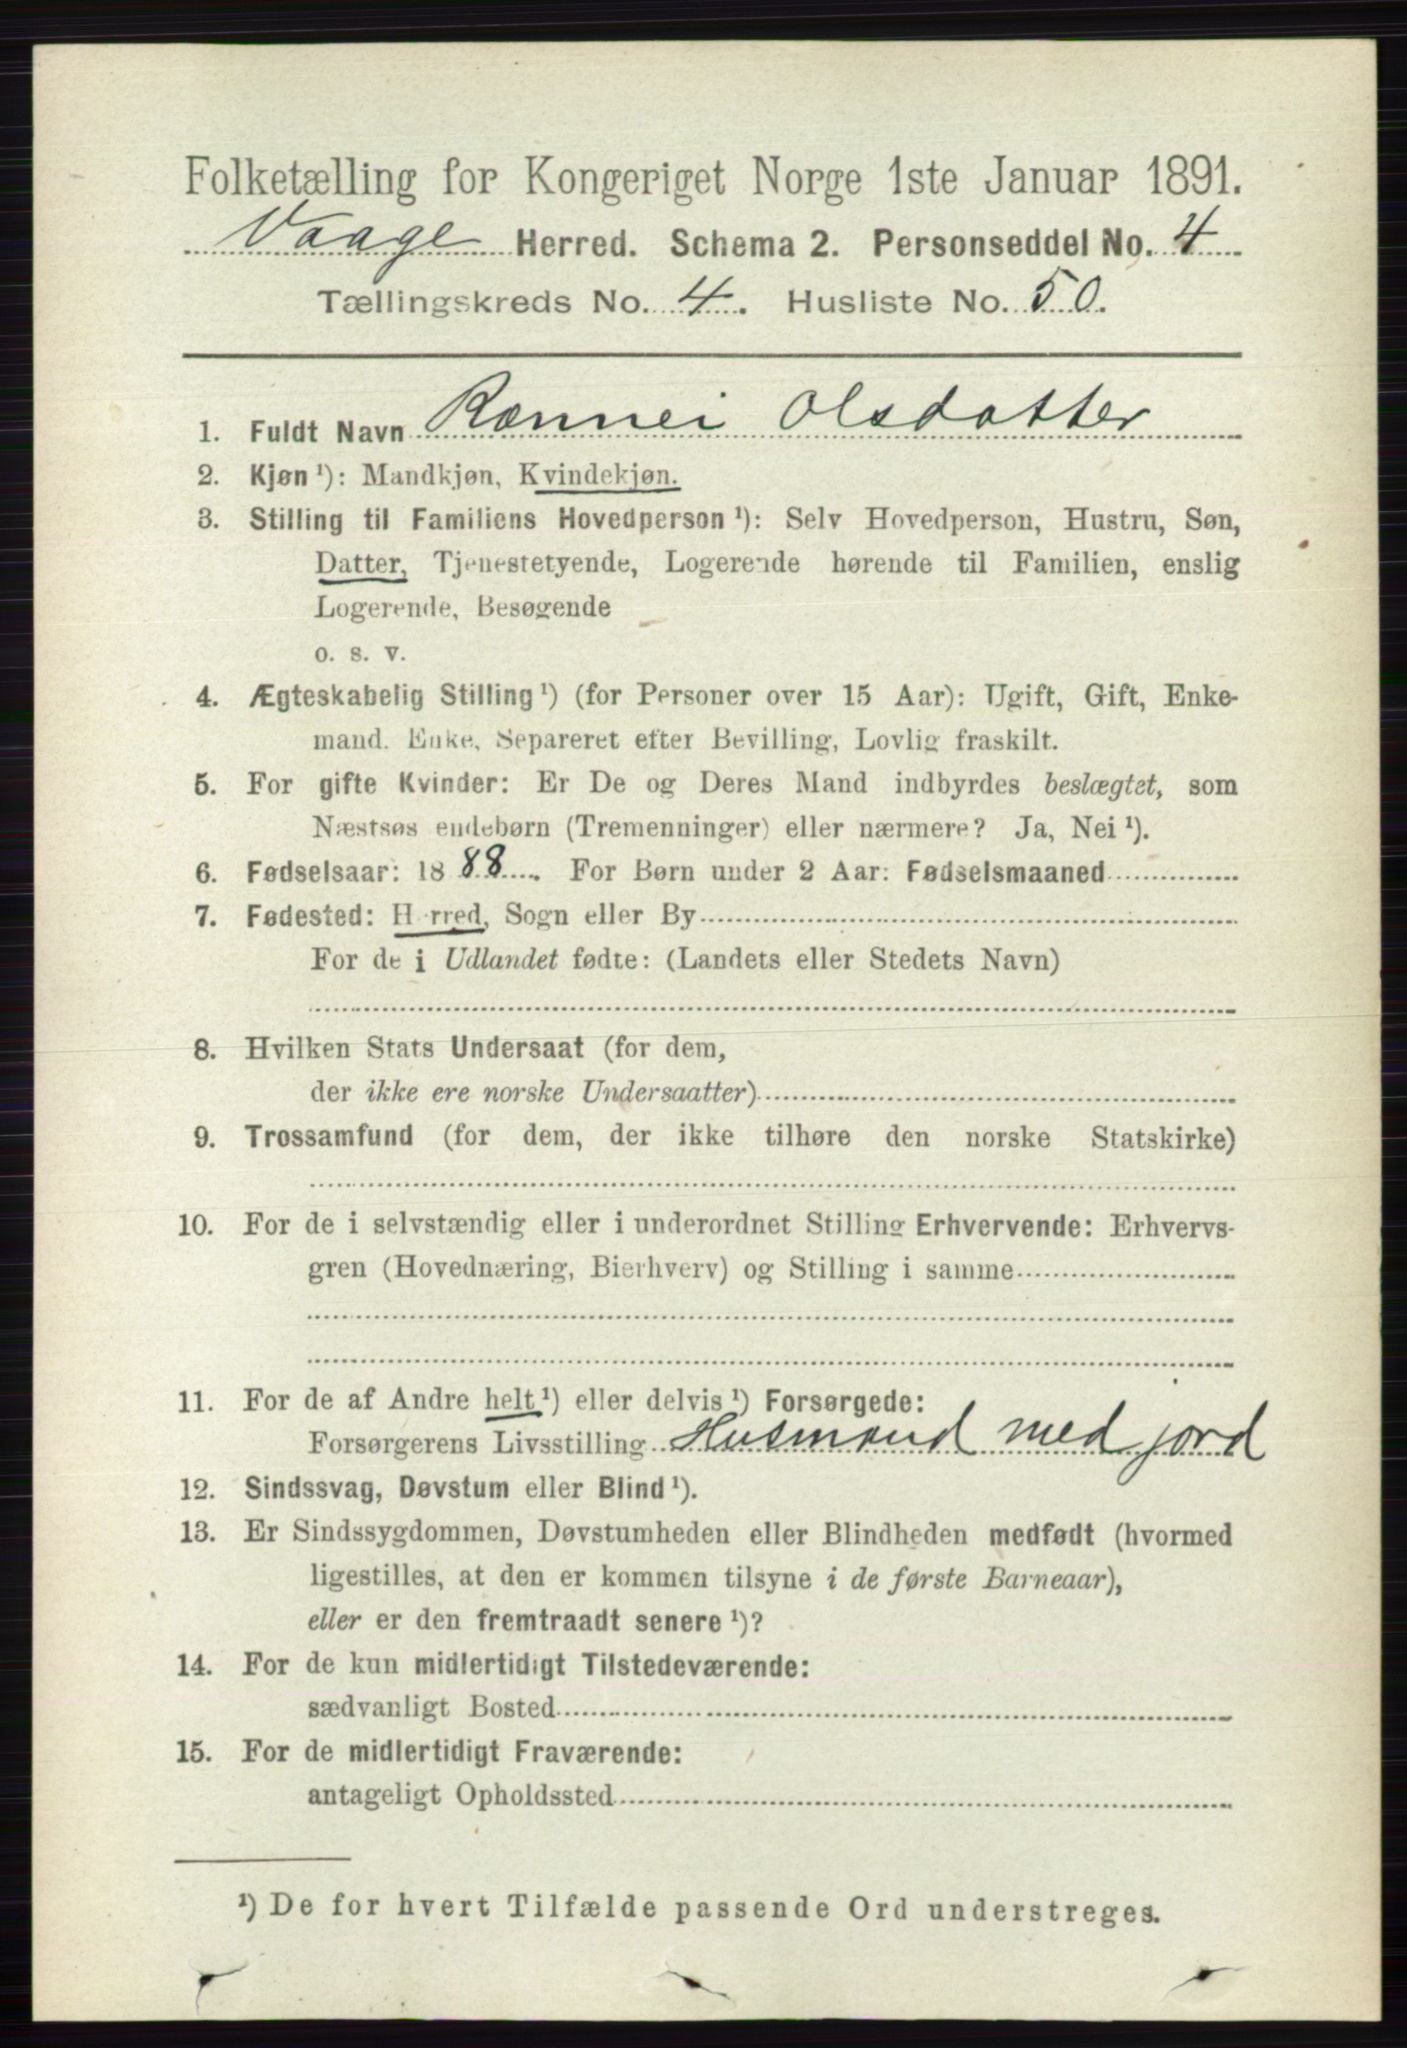 Folketælling for Kongeriget Norge 1ste Januar 1891.
Vaage Herred. Schema 2. Personseddel No. 4
Tællingskreds No. 4. Husliste No. 50.
1. Fuldt Navn Rønnei Olsdatter
2. Kjøn ¹): Mandkjøn, Kvindekjøn.
3. Stilling til Familiens Hovedperson ¹): Selv Hovedperson, Hustru, Søn,
Datter, Tjenestetyende, Logerende hørende til Familien, enslig
Logerende, Besøgende
o. s. v.
4. Ægteskabelig Stilling ¹) (for Personer over 15 Aar): Ugift, Gift, Enke-
mand, Enke, Separeret efter Bevilling, Lovlig fraskilt.
5. For gifte Kvinder: Er De og Deres Mand indbyrdes beslægtet, som
Næstsøskendebørn (Tremenninger) eller nærmere? Ja, Nei ¹).
6. Fødselsaar: 1888. For Børn under 2 Aar: Fødselsmaaned
7. Fødested: Herred, Sogn eller By
For de i Udlandet fødte: (Landets eller Stedets Navn)
8. Hvilken Stats Undersaat (for dem,
der ikke ere norske Undersaatter)
9. Trossamfund (for dem, der ikke tilhøre den norske Statskirke)
10. For de i selvstændig eller i underordnet Stilling Erhvervende: Erhvervs-
gren (Hovednæring, Bierhverv) og Stilling i samme
11. For de af Andre helt ¹) eller delvis ¹) Forsørgede:
Forsørgerens Livsstilling Husmand med jord
12. Sindssvag, Døvstum eller Blind ¹).
13. Er Sindssygdommen, Døvstumheden eller Blindheden medfødt (hvormed
ligestilles, at den er kommen tilsyne i de første Barneaar),
eller er den fremtraadt senere ¹)?
14. For de kun midlertidigt Tilstedeværende:
sædvanligt Bosted
15. For de midlertidigt Fraværende:
antageligt Opholdssted
¹) De for hvert Tilfælde passende Ord understreges.